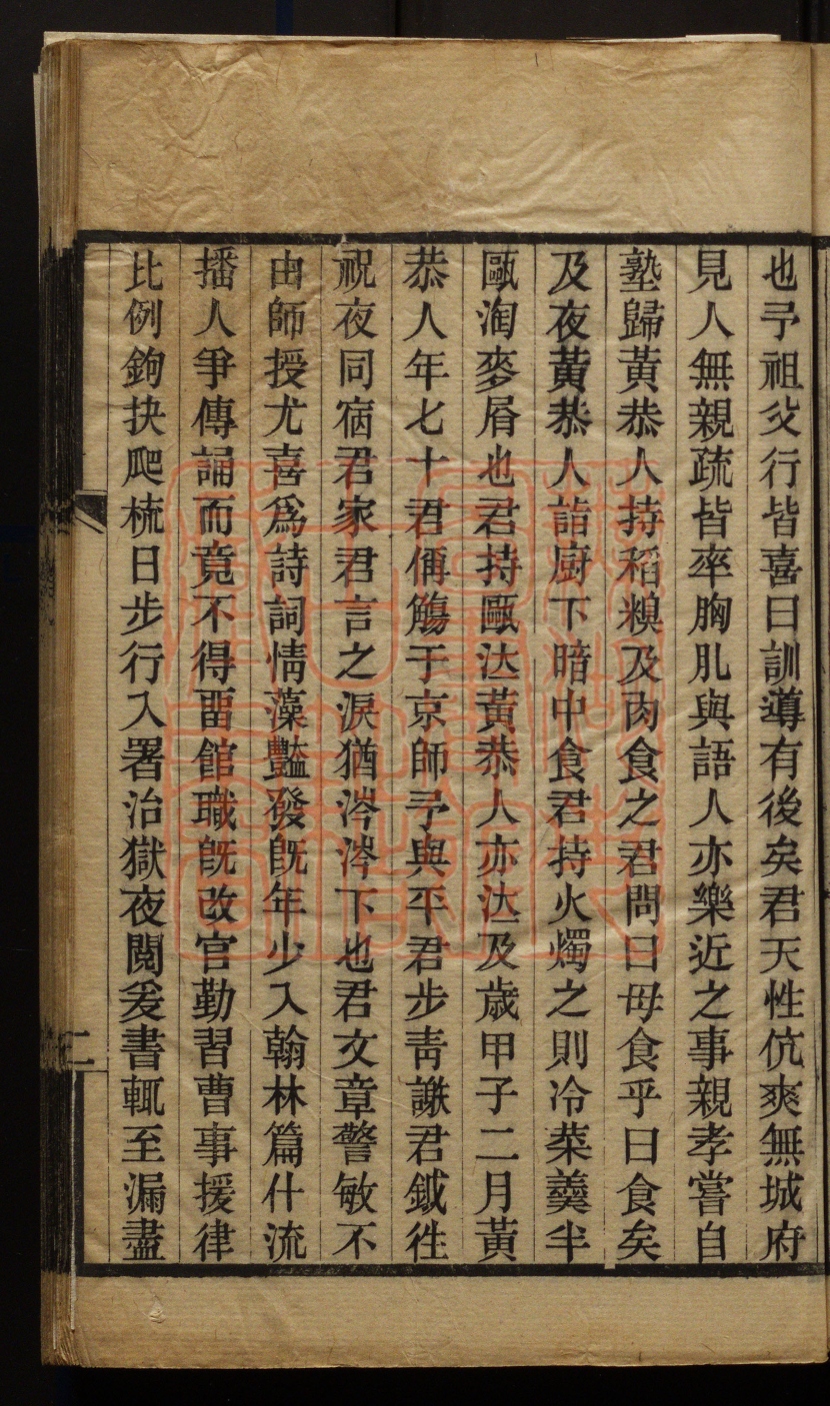 也予祖父行皆喜曰訓導有後矣君天性伉爽無城府
見人無親疏皆率胸肊與語人亦樂近之事親孝嘗自
塾歸黃恭人持稻糗及肉食之君問曰母食乎曰食矣
及夜黃恭人詣廚下暗中食君持火燭之則冷菜羹半
甌淘麥屑也君持甌泣黃恭人亦泣及歲甲子二月黃
恭人年七十君偁觴于京師予與平君步青謝君鉞往
祝夜同宿君家君言之淚猶涔涔下也君文章警敏不
由師授尤喜爲詩詞情藻豔發旣年少入翰林篇什流
播人爭傳誦而竟不得畱館職旣改官勤習曹事援律
比例鉤抉爬梳日步行入署治獄夜閱爰書輒至漏盡
二